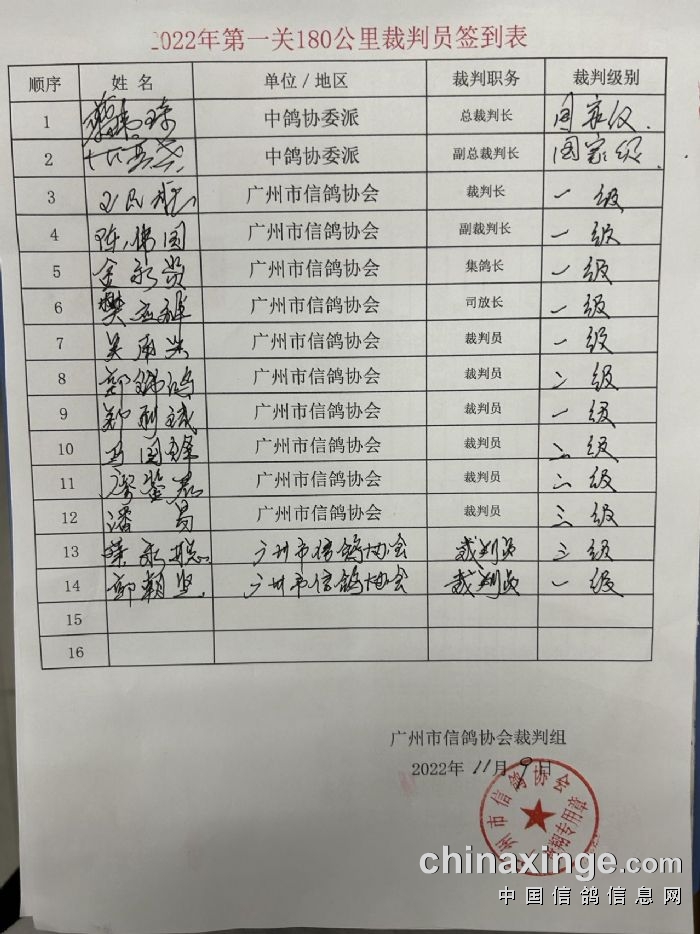 2022年第一关180公里裁判员签到表
顺序 姓名 单位/地区 裁判职务 裁判级别
1 中鸽协委派 总裁判长 国家级.
2 中鸽协委派 副总裁判长 国家级.
3 广州市信鸽协会 裁判长 一级
4 陈伟国 广州市信鸽协会 副裁判长 一级
5 金永贵 广州市信鸽协会 集鸽长 一级
6 樊 广州市信鸽协会 司放长 一级
7 吴 广州市信鸽协会 裁判员 一级
8 鸿 广州市信鸽协会 裁判员 二级
9 郑利斌 广州市信鸽协会 裁判员 一级
10 国锋 广州市信鸽协会 裁判员 二级
11 广州市信鸽协会 裁判员 二级
12 潘昌 广州市信鸽协会 裁判员 三级
13 永聪 广州市信鸽协会 裁判员 三级
14 朝坚 广州市信鸽协会 裁判员 一级
15
16
广州市信鸽协会裁判组
2022年11月9日
广州市信鸽协会
chinaxinge.com
中国信鸽信息网